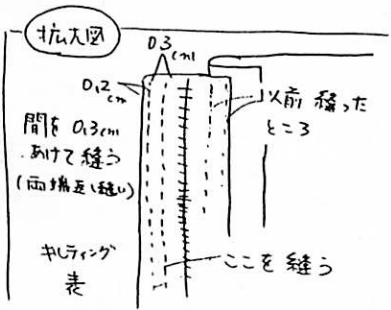 拡大図
0.3cm
0.2cm
以前縫った
ところ
間を0.3cm
あけて縫う
(両端返し縫い)
キルティング
表
ここを縫う